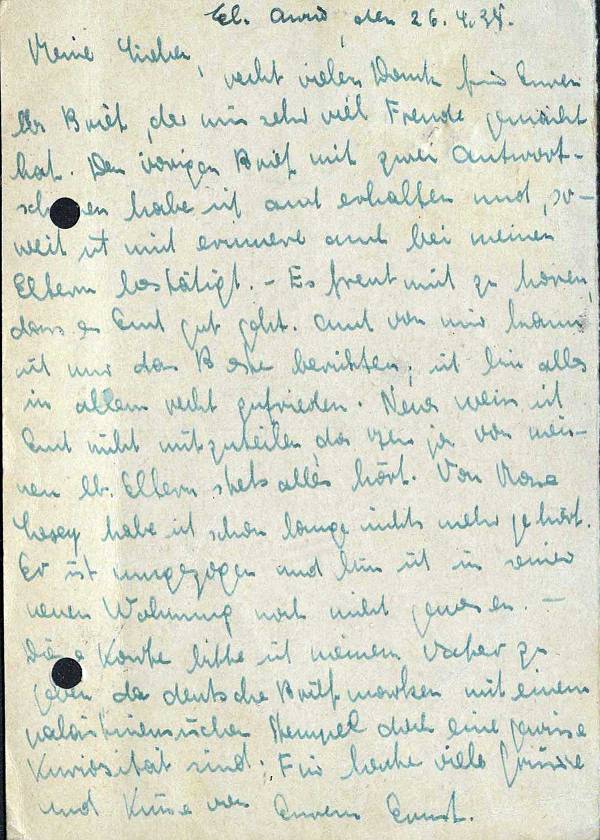 den 26.4.38.
Meine Lieben,
recht vielen Dank für Euren
lb. Brief, der mir sehr viel Freude gemacht
hat. Den vorigen Brief mit zwei Antwort-
sch en habe ich auch erhalten und, so-
weit ich mich erinnere auch bei meinen
Eltern bestätigt. - Es freut mich zu hören,
dass es Euch gut geht. Auch von mir kann
ich nur das Beste berichten; ich bin alles
in allem recht zufrieden. Neues weiss ich
Euch nicht mitzuteilen, da ja von mei-
nen lb. Eltern stets alles hört. Von
habe ich schon lange nichts mehr gehört.
Er ist umgezogen und bin ich in seiner
neuen Wohnung noch nicht gewesen. -
Diese Karte bitte ich meinem Vater zu
geben da deutsche Briefmarken mit einem
palästinensischen Stempel doch eine gewisse
Kuriosität sind. Für heute viele Grüsse
und Küsse von Eurem Ernst.